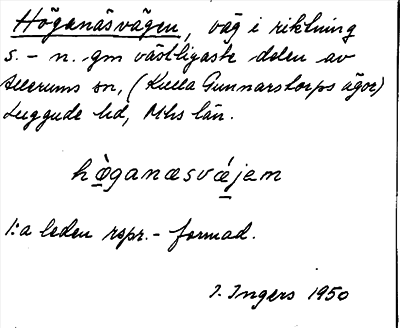 Höganäsvägen, väg i riktning
s. - n. gm västligaste delen av
Allerums sn, (Kulla Gunnarstorps ägor)
Luggude hd, Mhs län.
hò̱ganæsvǽ̱jem
1:a leden rspr. - formad.
I. Ingers 1950